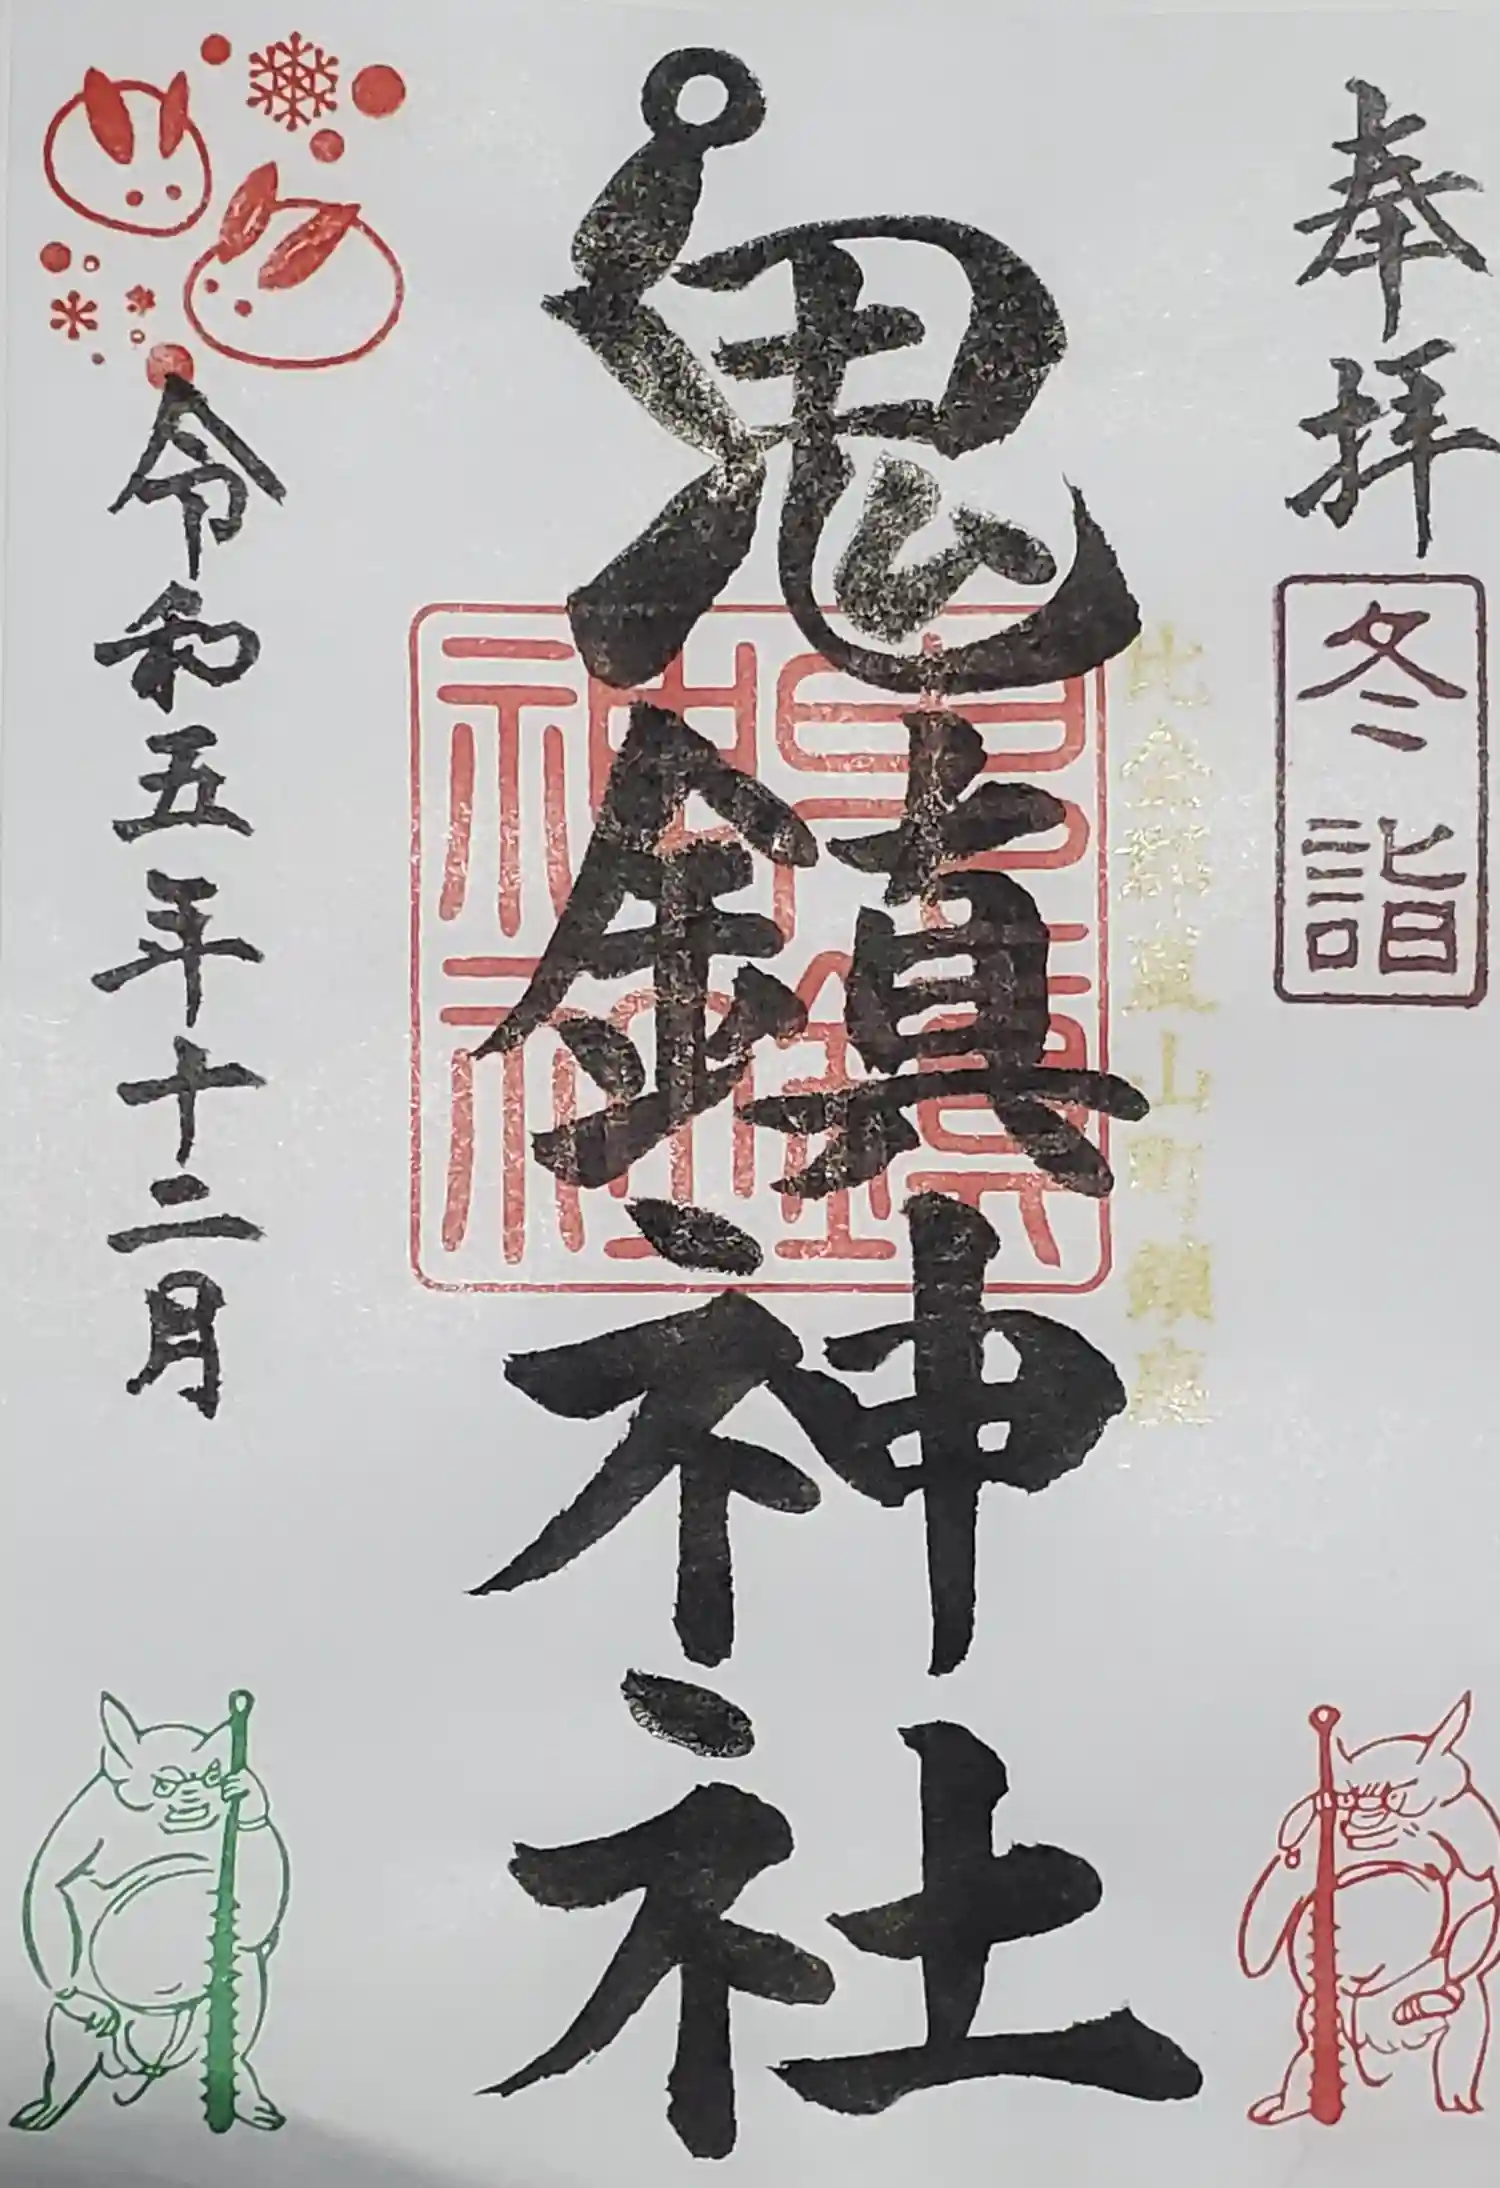 奉拝
冬詣
比企郡嵐山町鎮座
鬼鎮神社
鬼鎮神社
令和五年十二月